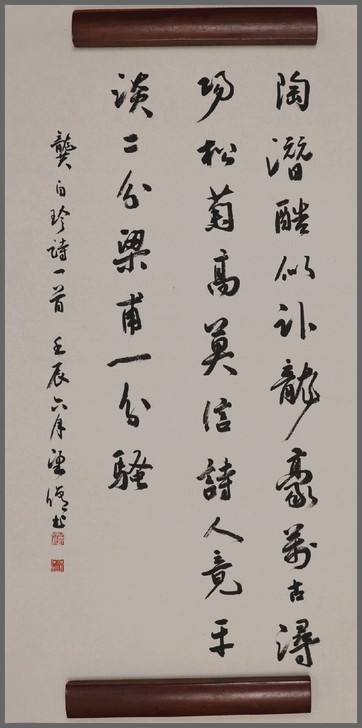 陶潛酷似卧龍豪萬古潯
陽松菊高莫信詩人竟平
淡二分梁甫一分騷
龔自珍詩一首 壬辰六月梁書